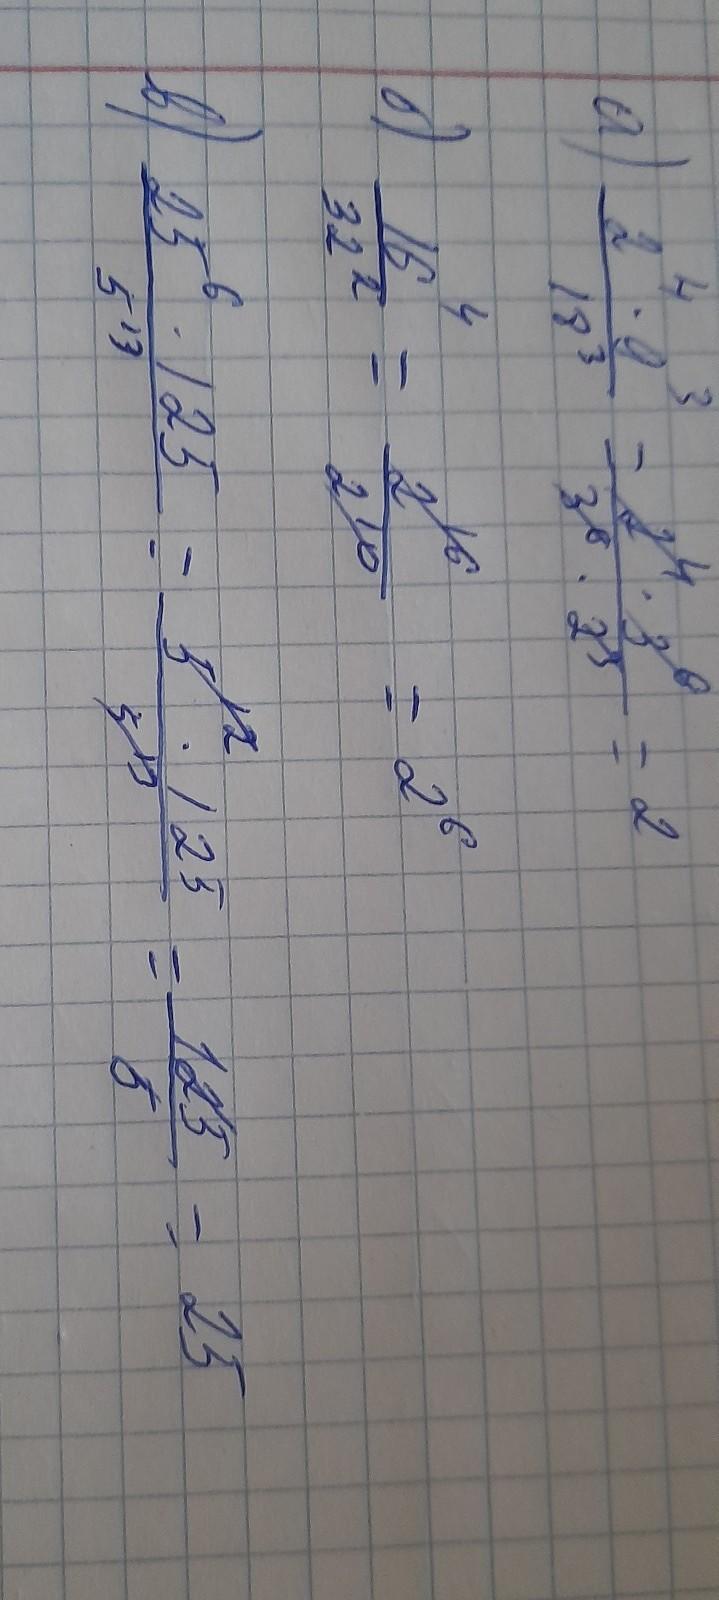 а) 2⁴ · 9³ / 18³ = 2⁴ · 3⁶ / 3⁶ · 2³ = 2
б) 16⁴ / 32² = 2¹⁶ / 2¹⁰ = 2⁶
в) 25⁶ · 125 / 5¹³ = 5¹² · 125 / 5¹³ = 125 / 5 = 25